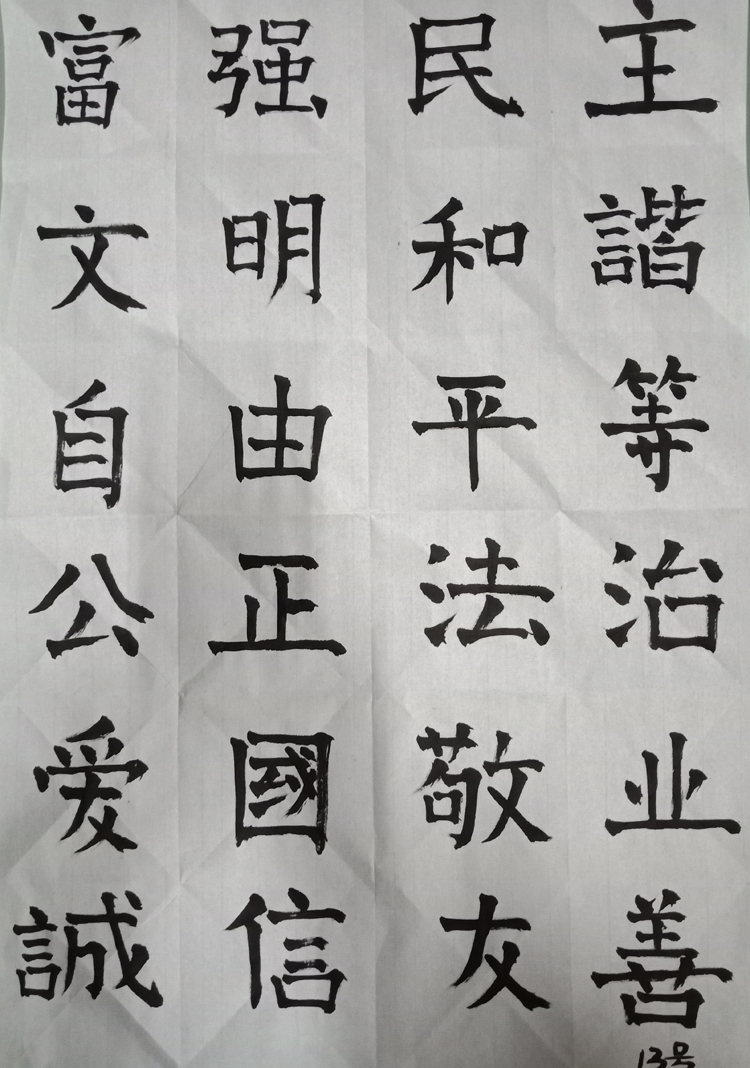 富强民主
文明和諧
自由平等
公正法治
爱國敬业
誠信友善
13号